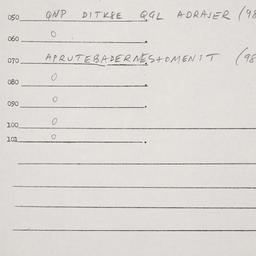 050 QNP DITK8E QGL ADRAJER (98
060 0
070 APRUTEBADERNES+OMENIT (98
080 0
090 0
100 0
101 0